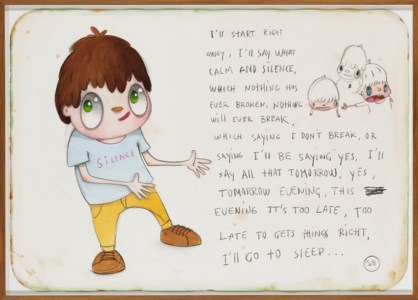 I'll START RIGHT
AWAY, I'll SAY WHAT
CALM AND SILENCE,
WHICH NOTHING HAS
EVER BROKEN, NOTHING
WILL EVER BREAK,
WHICH SAYING I DON'T BREAK, OR
SAYING I'll BE SAYING YES, I'll
SAY ALL THAT TOMORROW, YES,
TOMORROW EVENING, THIS
EVENING IT'S TOO LATE, TOO
LATE TO GETS THINGS RIGHT,
I'll GO TO SLEEP...
SILENCE